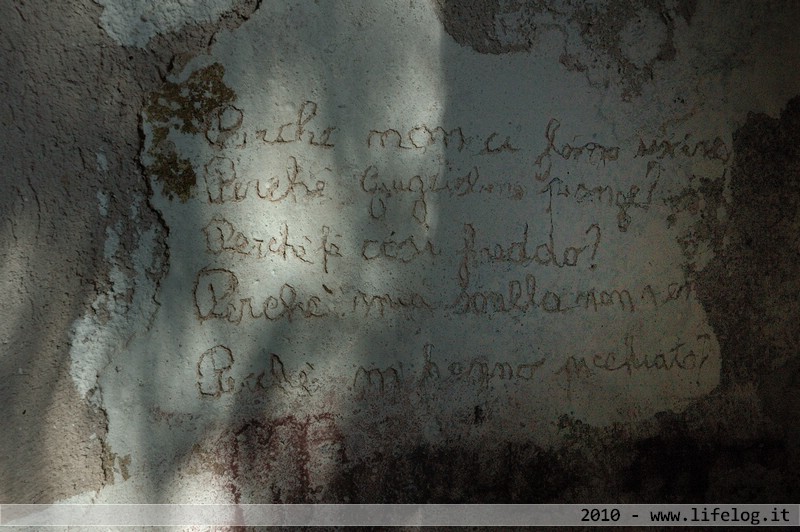 Perché non ci fanno uscire
Perché Guglielmo piange?
Perché fà così freddo?
Perché mia sorella non
Perché mi hanno picchiato?
2010 - www.lifelog.it